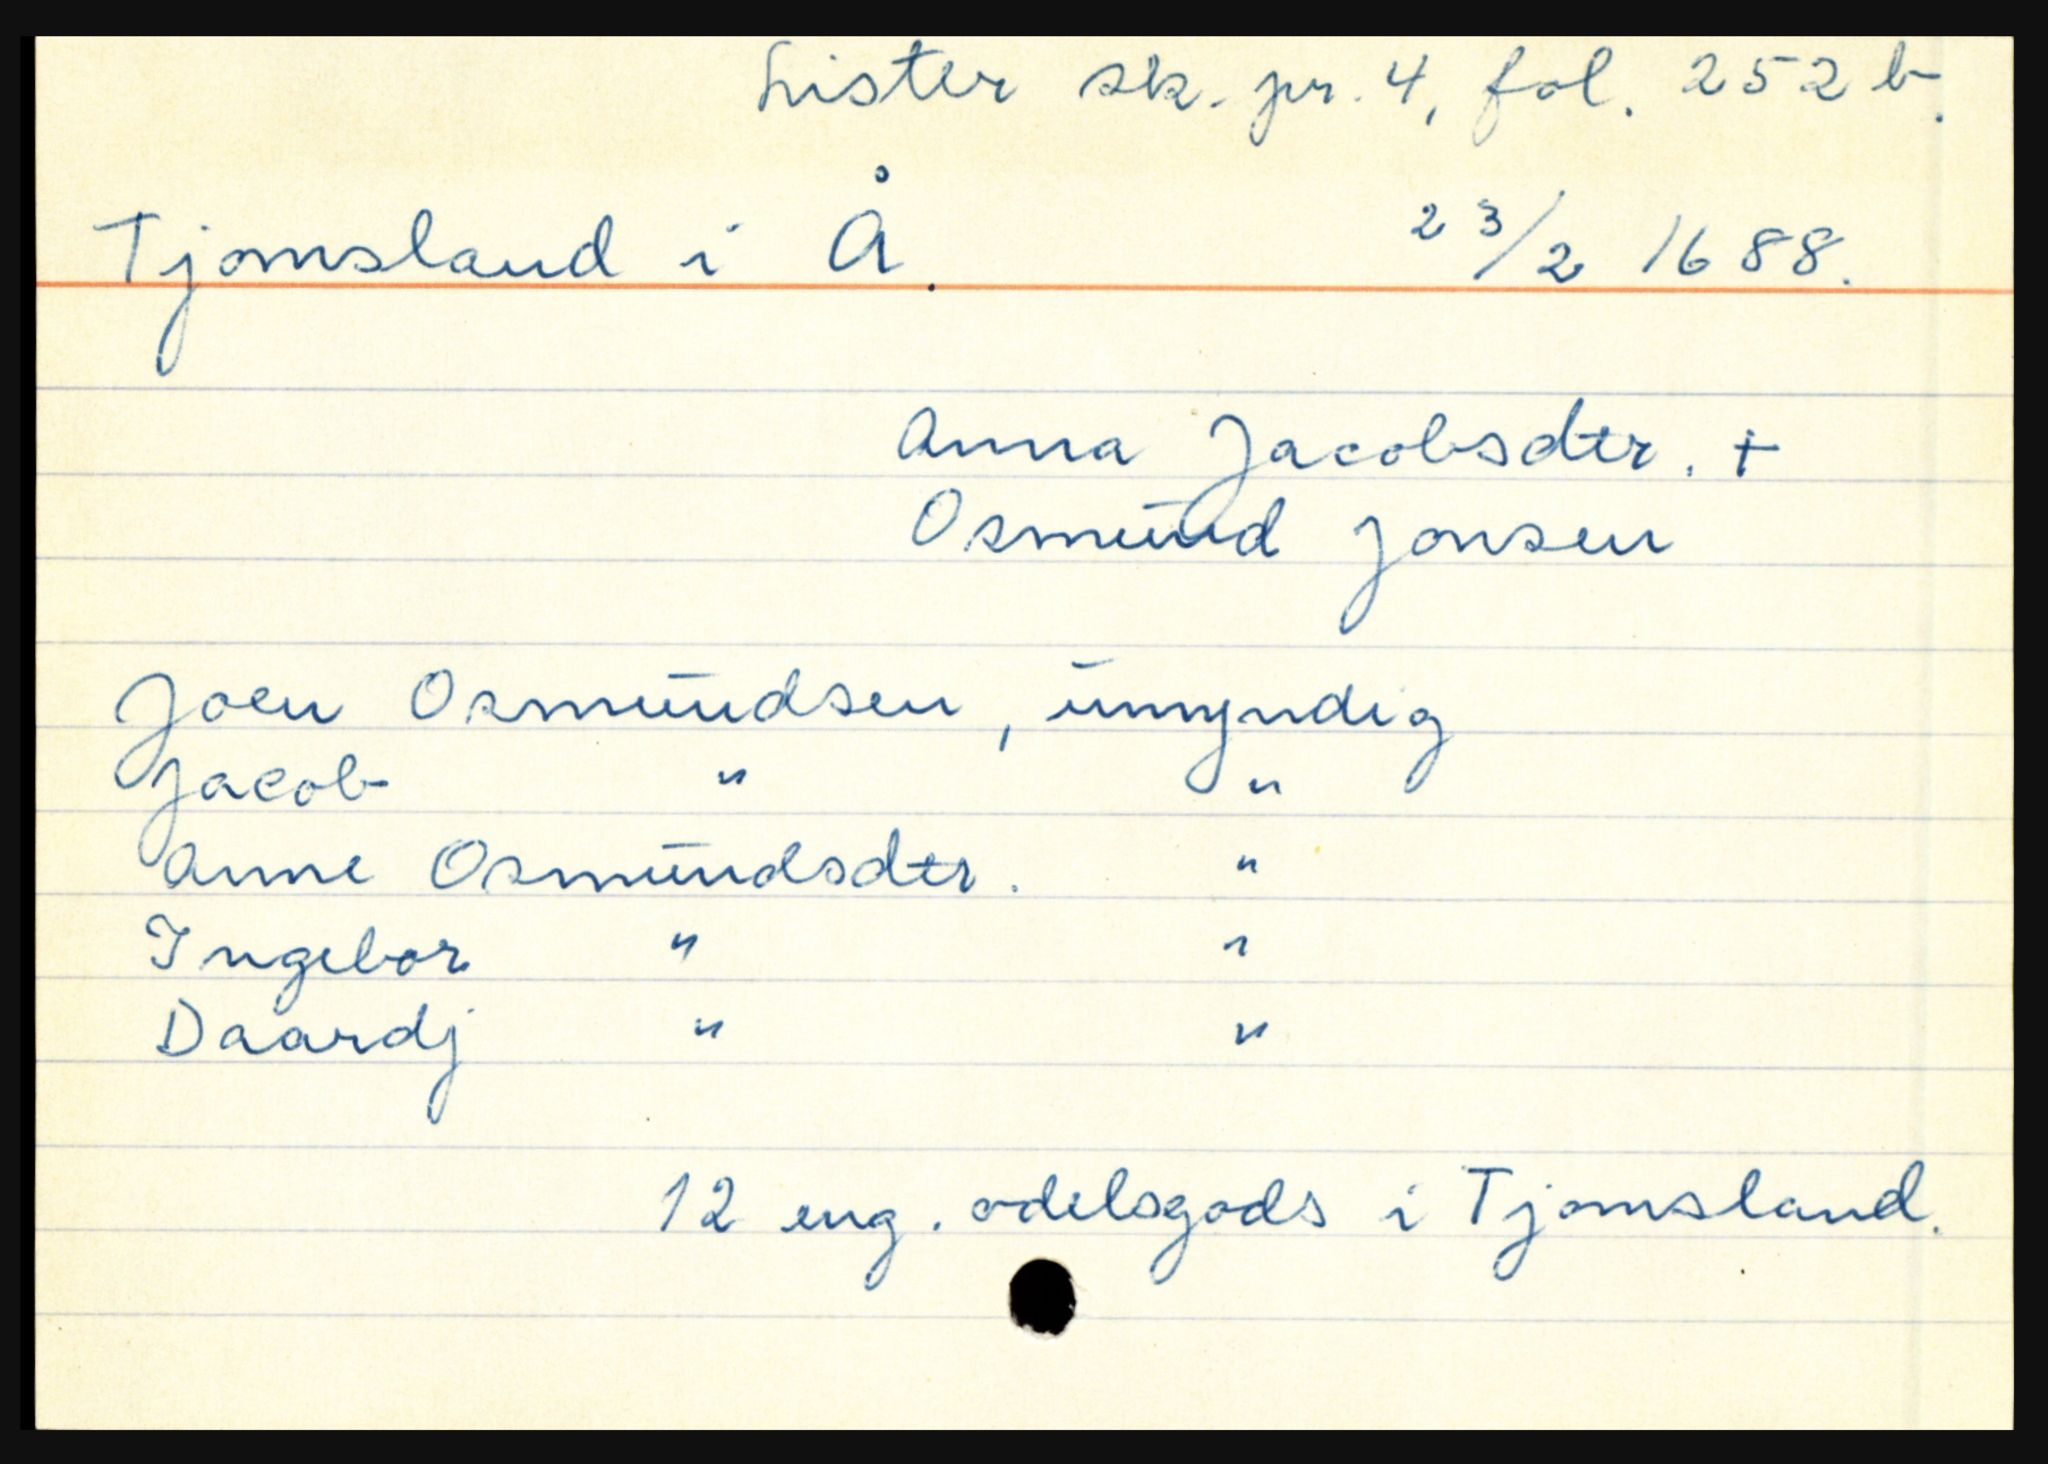 Lister sk. pr. 4, fol. 252 b.
Tjomsland i Å. 23/2 1688.
Anna Jacobsdtr. +
Osmund Jonsen
Joen Osmundsen, umyndig
Jacob " "
Anne Osmundsdtr. "
Ingebor " "
Daardj " "
12 eng. odelsgods i Tjomsland.